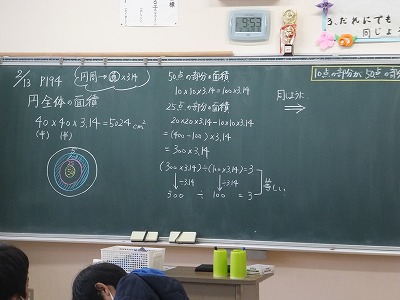 3、だれにでも
同じよう
9:53
2/13 P194
円周→直×3.14
円全体の面積
40×40×3.14=5024cm²
(半) (半)
50
50点の部分の面積
10×10×3.14=100×3.14
25点の部分の面積
20×20×3.14-10×10×3.14
=(400-100)×3.14
=300×3.14
(300×3.14)÷(100×3.14)=3
↓÷3.14 ↓÷3.14
300 ÷ 100 = 3
等しい
同じように
⇒
10点の部分が50点の部分